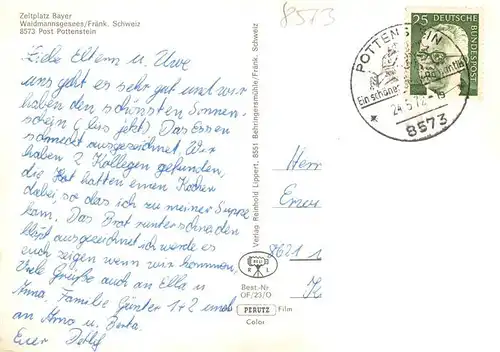 Zeltplatz Bayer
Waidmannsgesees/Fränk. Schweiz
8573 Post Pottenstein
8573
Liebe Eltern u. Uwe
uns geht es sehr gut und wir
haben den schönsten Sonnen-
schein (bis jetzt) Das Essen
schmeckt ausgezeichnet. Wir
haben 2 Kollegen gefunden,
die hatten einen Kocher
dabei so das ich zu meiner Suppe
kam. Das Brot runterschneiden
klappt ausgezeichnet ich werde es
euch zeigen wenn wir kommen,
Viele Grüße auch an Ella u
Anna, Familie Günter 1+2 und
an Arno u. Berta.
Euer Detlef
Verlag Reinhold Lippert, 8551 Behringersmühle/Fränk. Schweiz
R L
Best.-Nr
OF/23/O
PERUTZ Film
Color
25 DEUTSCHE
BUNDESPOST
POTTENSTEIN
Ein schöner
24.5.72
8573
Herr
8621